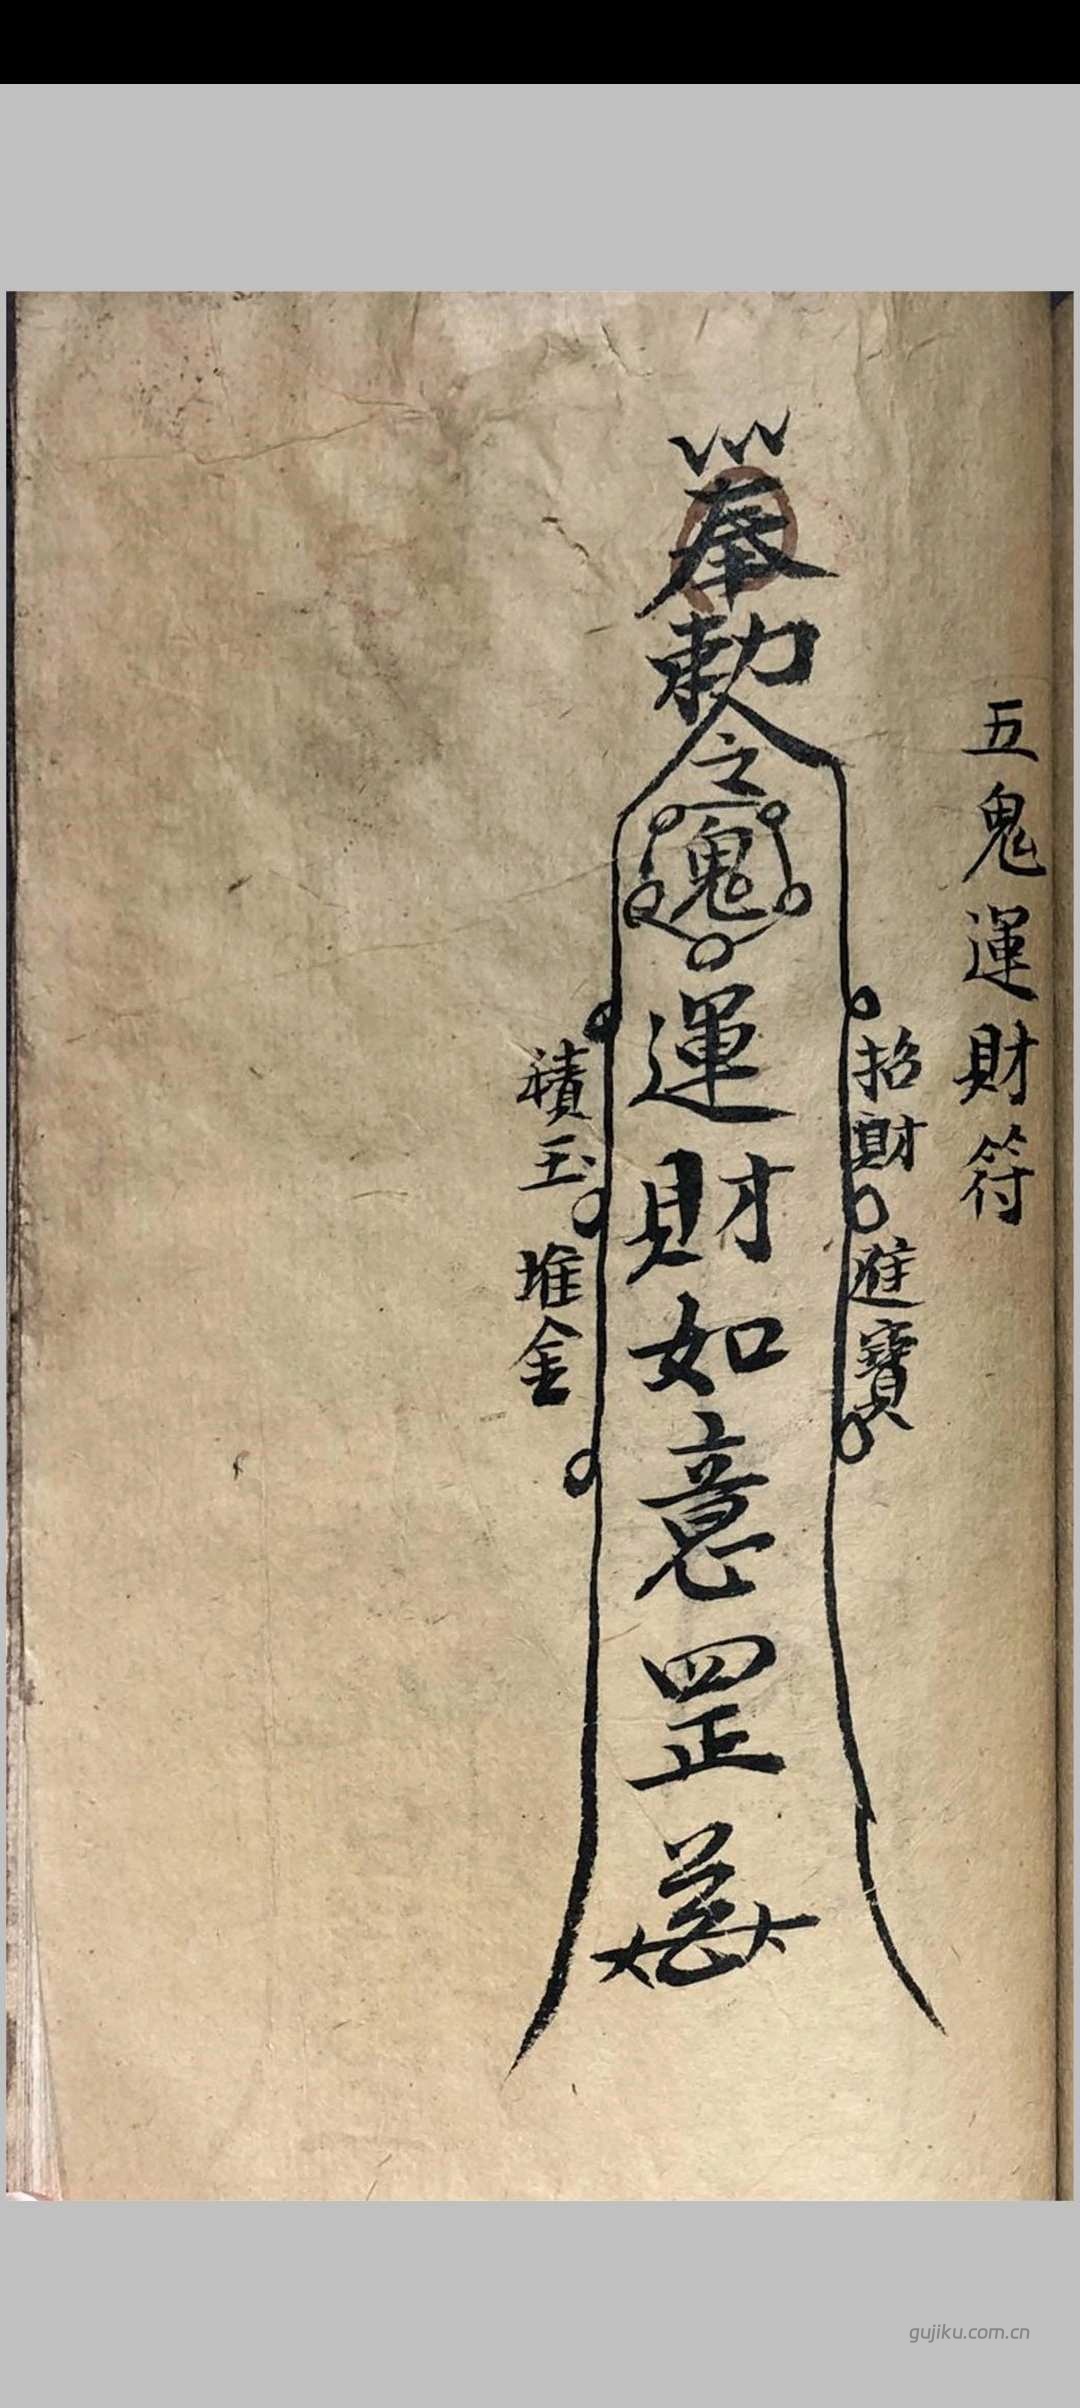 五鬼運財符
招財進寶
奉勅令
鬼
運財如意罡
積玉堆金
gujiku.com.cn